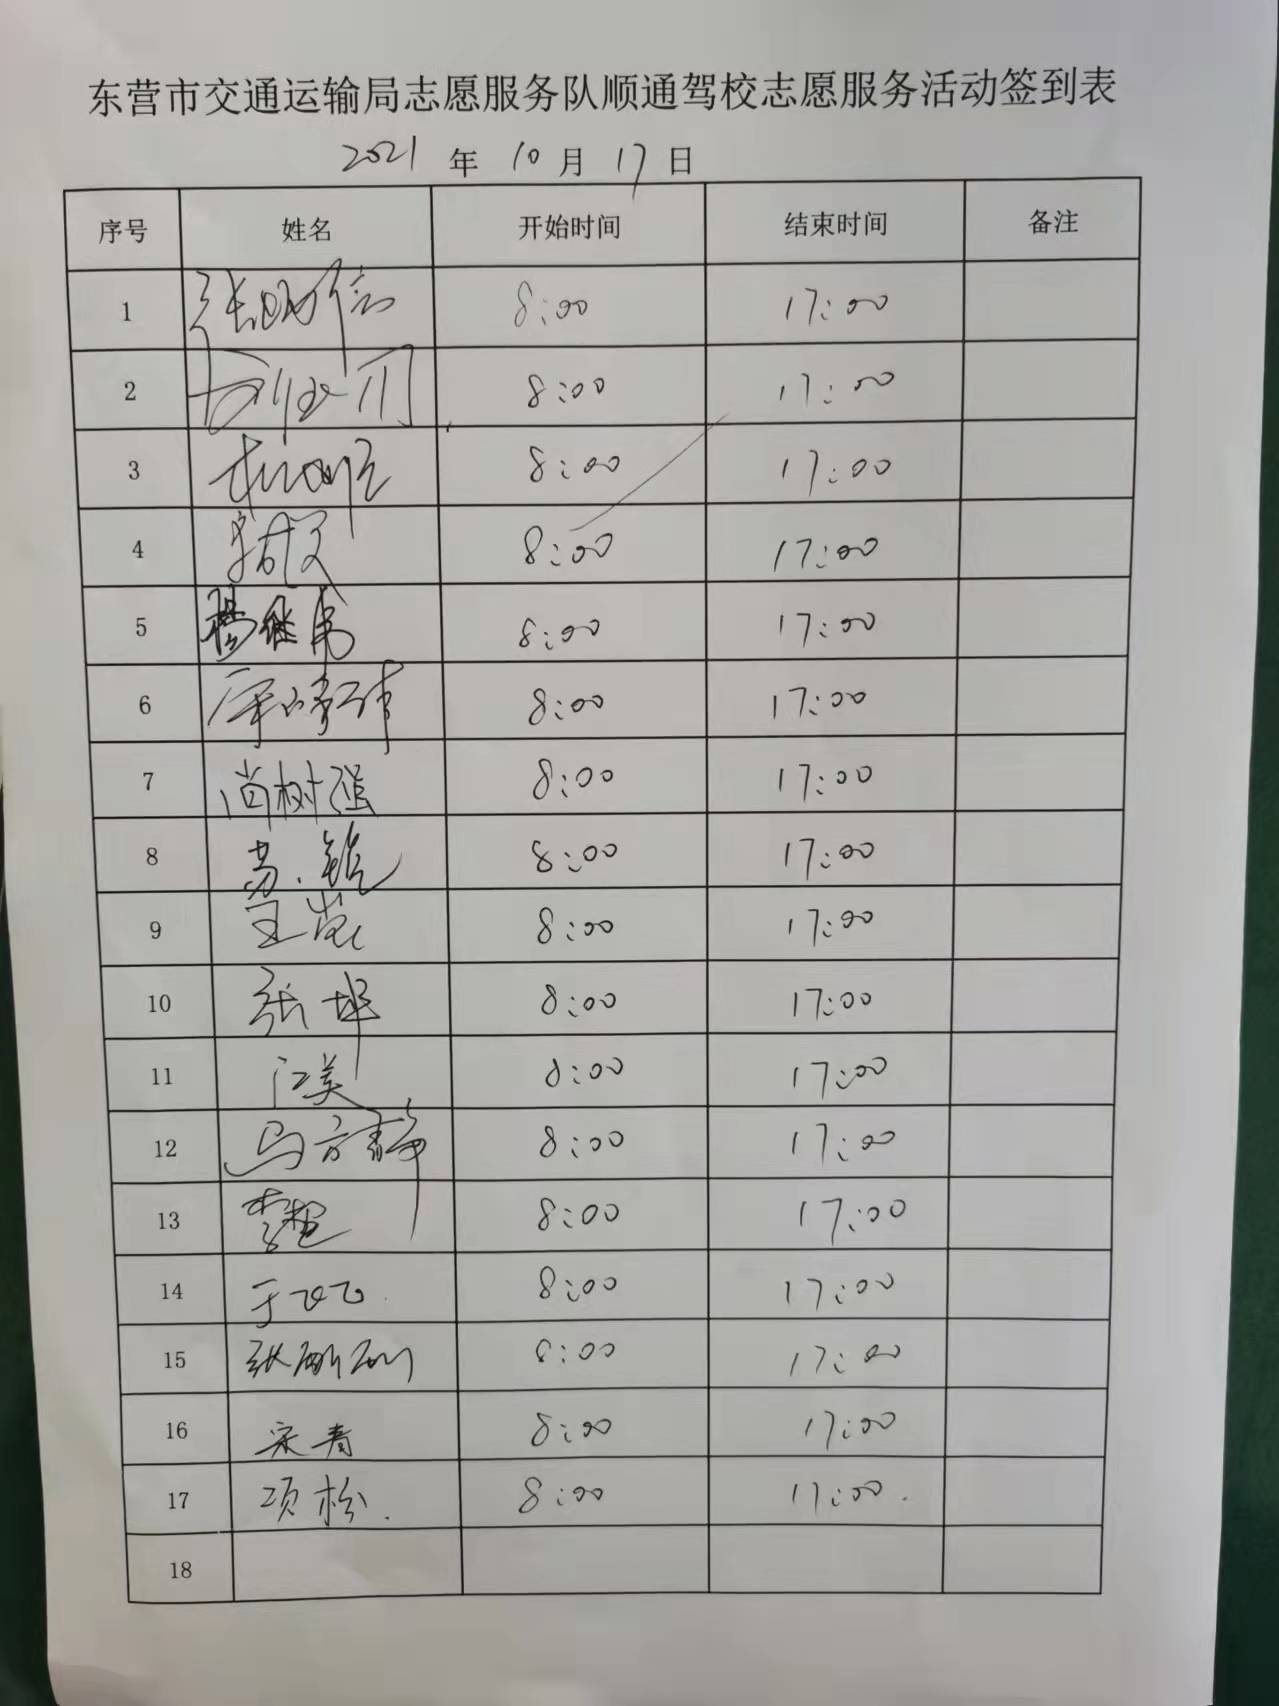 东营市交通运输局志愿服务队顺通驾校志愿服务活动签到表
2021 年 10 月 17 日
序号 姓名 开始时间 结束时间 备注
1 张明信 8:00 17:00
2 8:00 17:00
3 8:00 17:00
4 8:00 17:00
5 杨继 8:00 17:00
6 8:00 17:00
7 尚树强 8:00 17:00
8 苏 8:00 17:00
9 王 8:00 17:00
10 张坤 8:00 17:00
11 江美 8:00 17:00
12 马方静 8:00 17:00
13 李超 8:00 17:00
14 于飞飞 8:00 17:00
15 张 8:00 17:00
16 宋青 8:00 17:00
17 项松 8:00 17:00
18